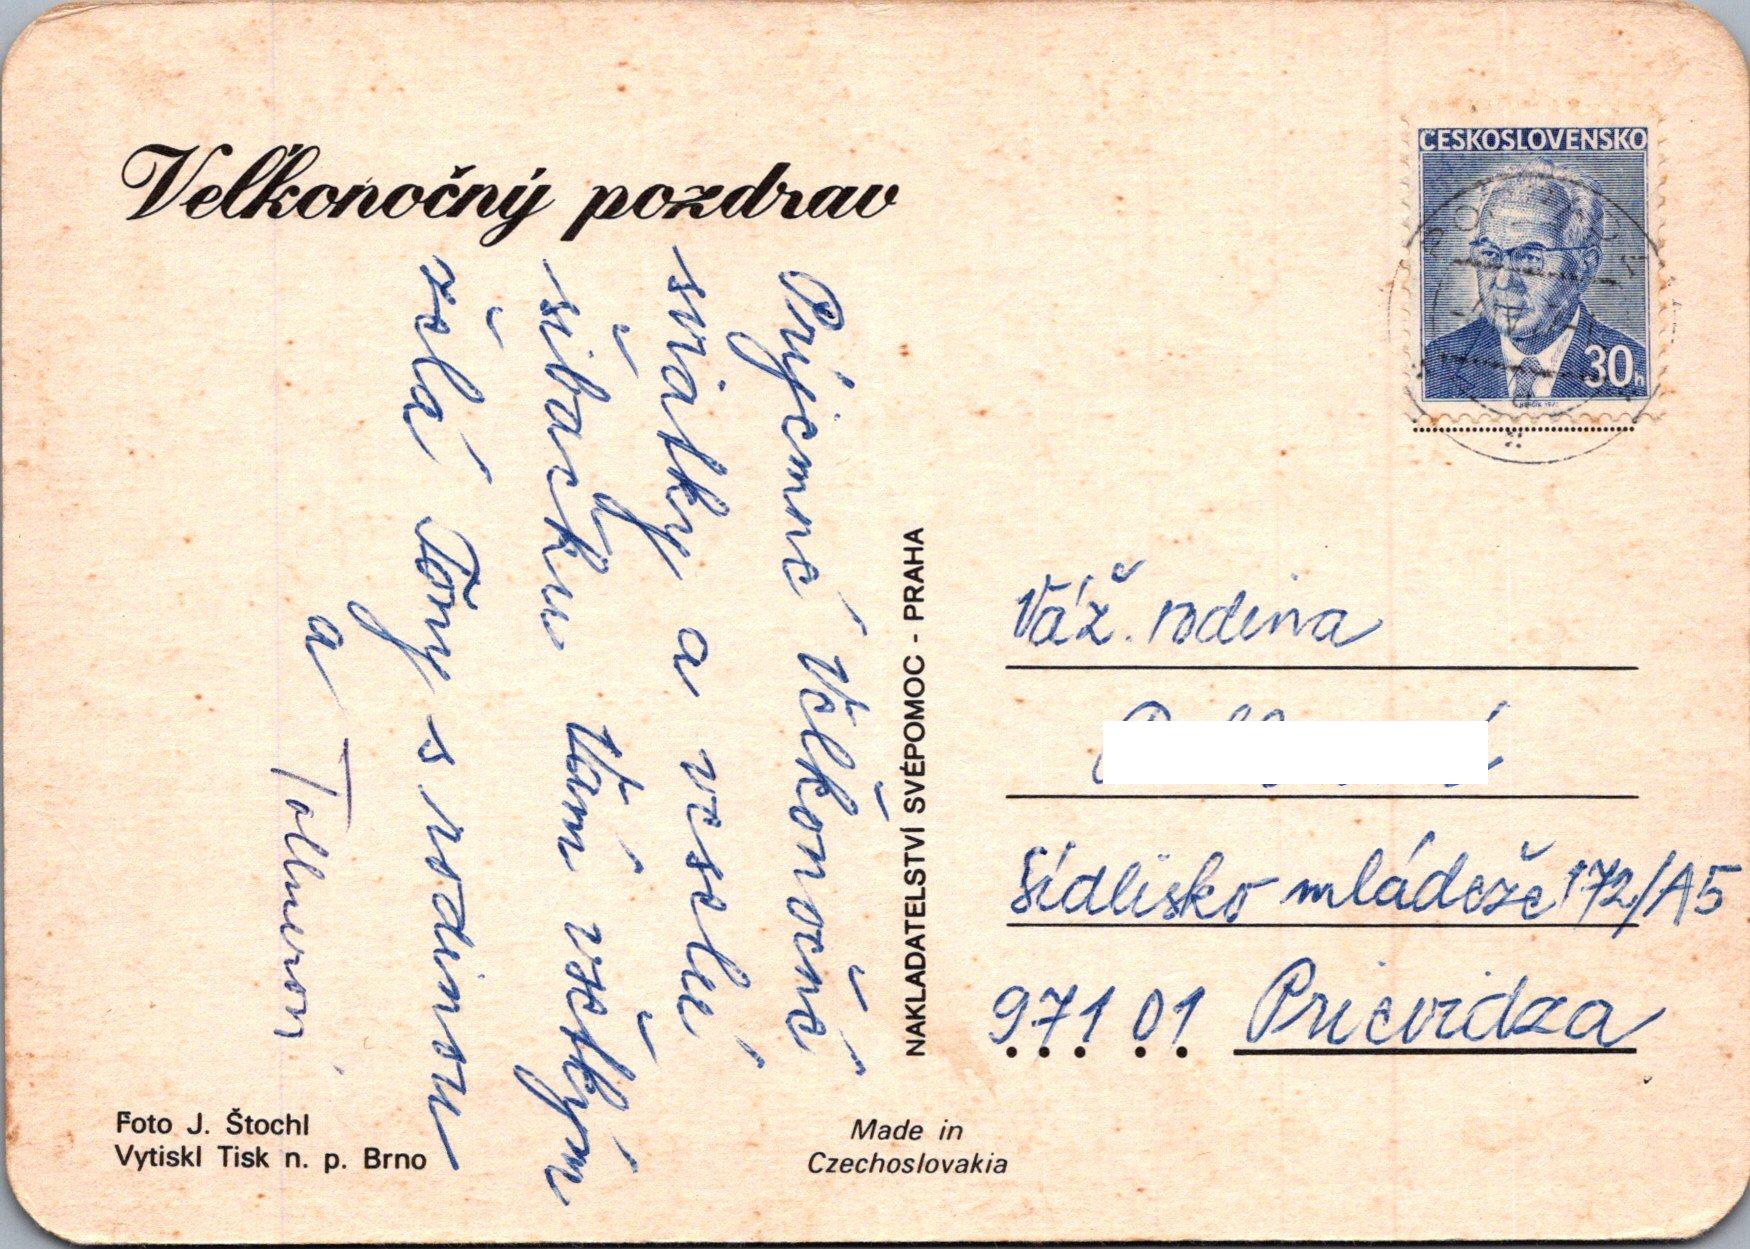 Veľkonočný pozdrav
Príjemné Veľkonočné
sviatky a veselú
šibačku Vám všetkým
želá Tóny s rodinou
a
ČESKOSLOVENSKO
30h
NAKLADATELSTVÍ SVÉPOMOC - PRAHA
Váž. rodina
Sídlisko mládeže 172/A5
971 01 Prievidza
Foto J. Štochl
Vytiskl Tisk n. p. Brno
Made in
Czechoslovakia